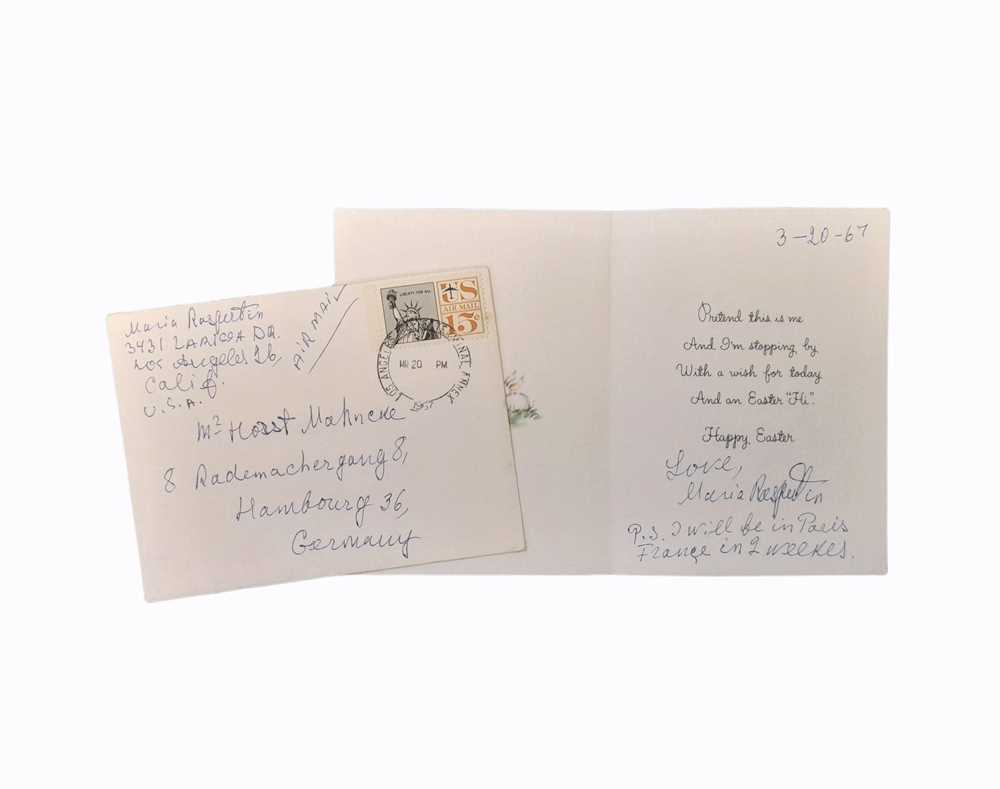 Maria Rasputin
3431 LARISSA DR.
Los Angeles 26,
Calif.
U.S.A.
AIR MAIL
LIBERTY FOR ALL
US
AIR MAIL
15¢
LOS ANGELES
MR 20 PM
1967
Mr Horst Mahncke
8 Rademachergang 8,
Hambourg 36,
Germany
3-20-67
Pretend this is me
And I'm stopping by
With a wish for today
And an Easter "Hi".
Happy Easter
Love,
Maria Rasputin
P.S. I will be in Paris
France in 2 weekes.